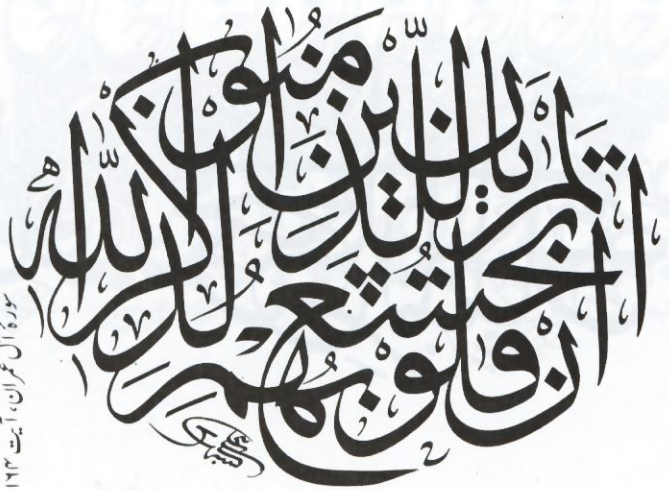 الم يان للذين امنوا ان تخشع قلوبهم لذكر الله
سورۃ آل عمران، آیت ۱۶۴